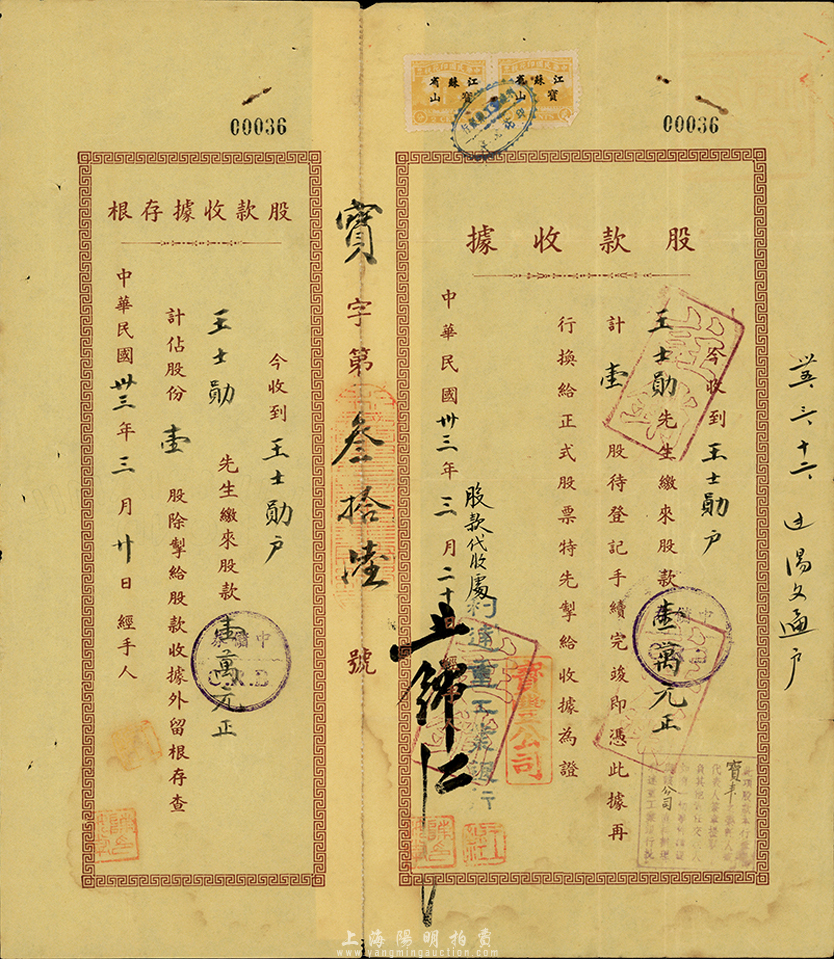 江蘇省
寶山
江蘇省
寶山
00036
00036
股款收據
今收到王士勛户
王士勛先生繳來股款壹萬元正
計壹股待登記手續完竣即憑此據再
行換給正式股票特先掣給收據為證
中華民國卅三年三月二十日
股款代收處
通重工業銀行
寶豐公司
王錦仁
寶字第叁拾陸號
股款收據存根
今收到王士勛户
王士勛先生繳來股款壹萬元正
計佔股份壹股除掣給股款收據外留根存查
中華民國卅三年三月廿日經手人
中儲券
C.R.B
上海陽明拍賣
www.yangmingauction.com